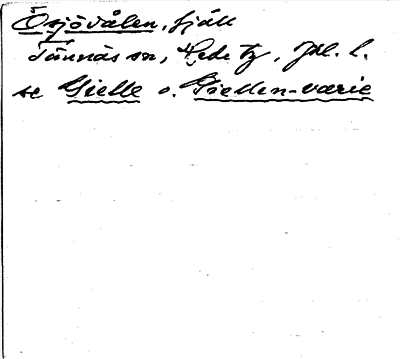 Ösjövålen, fjäll
Tännäs sn, Hede tg, Jtl. l.
se Gielle o. Giellen-varie